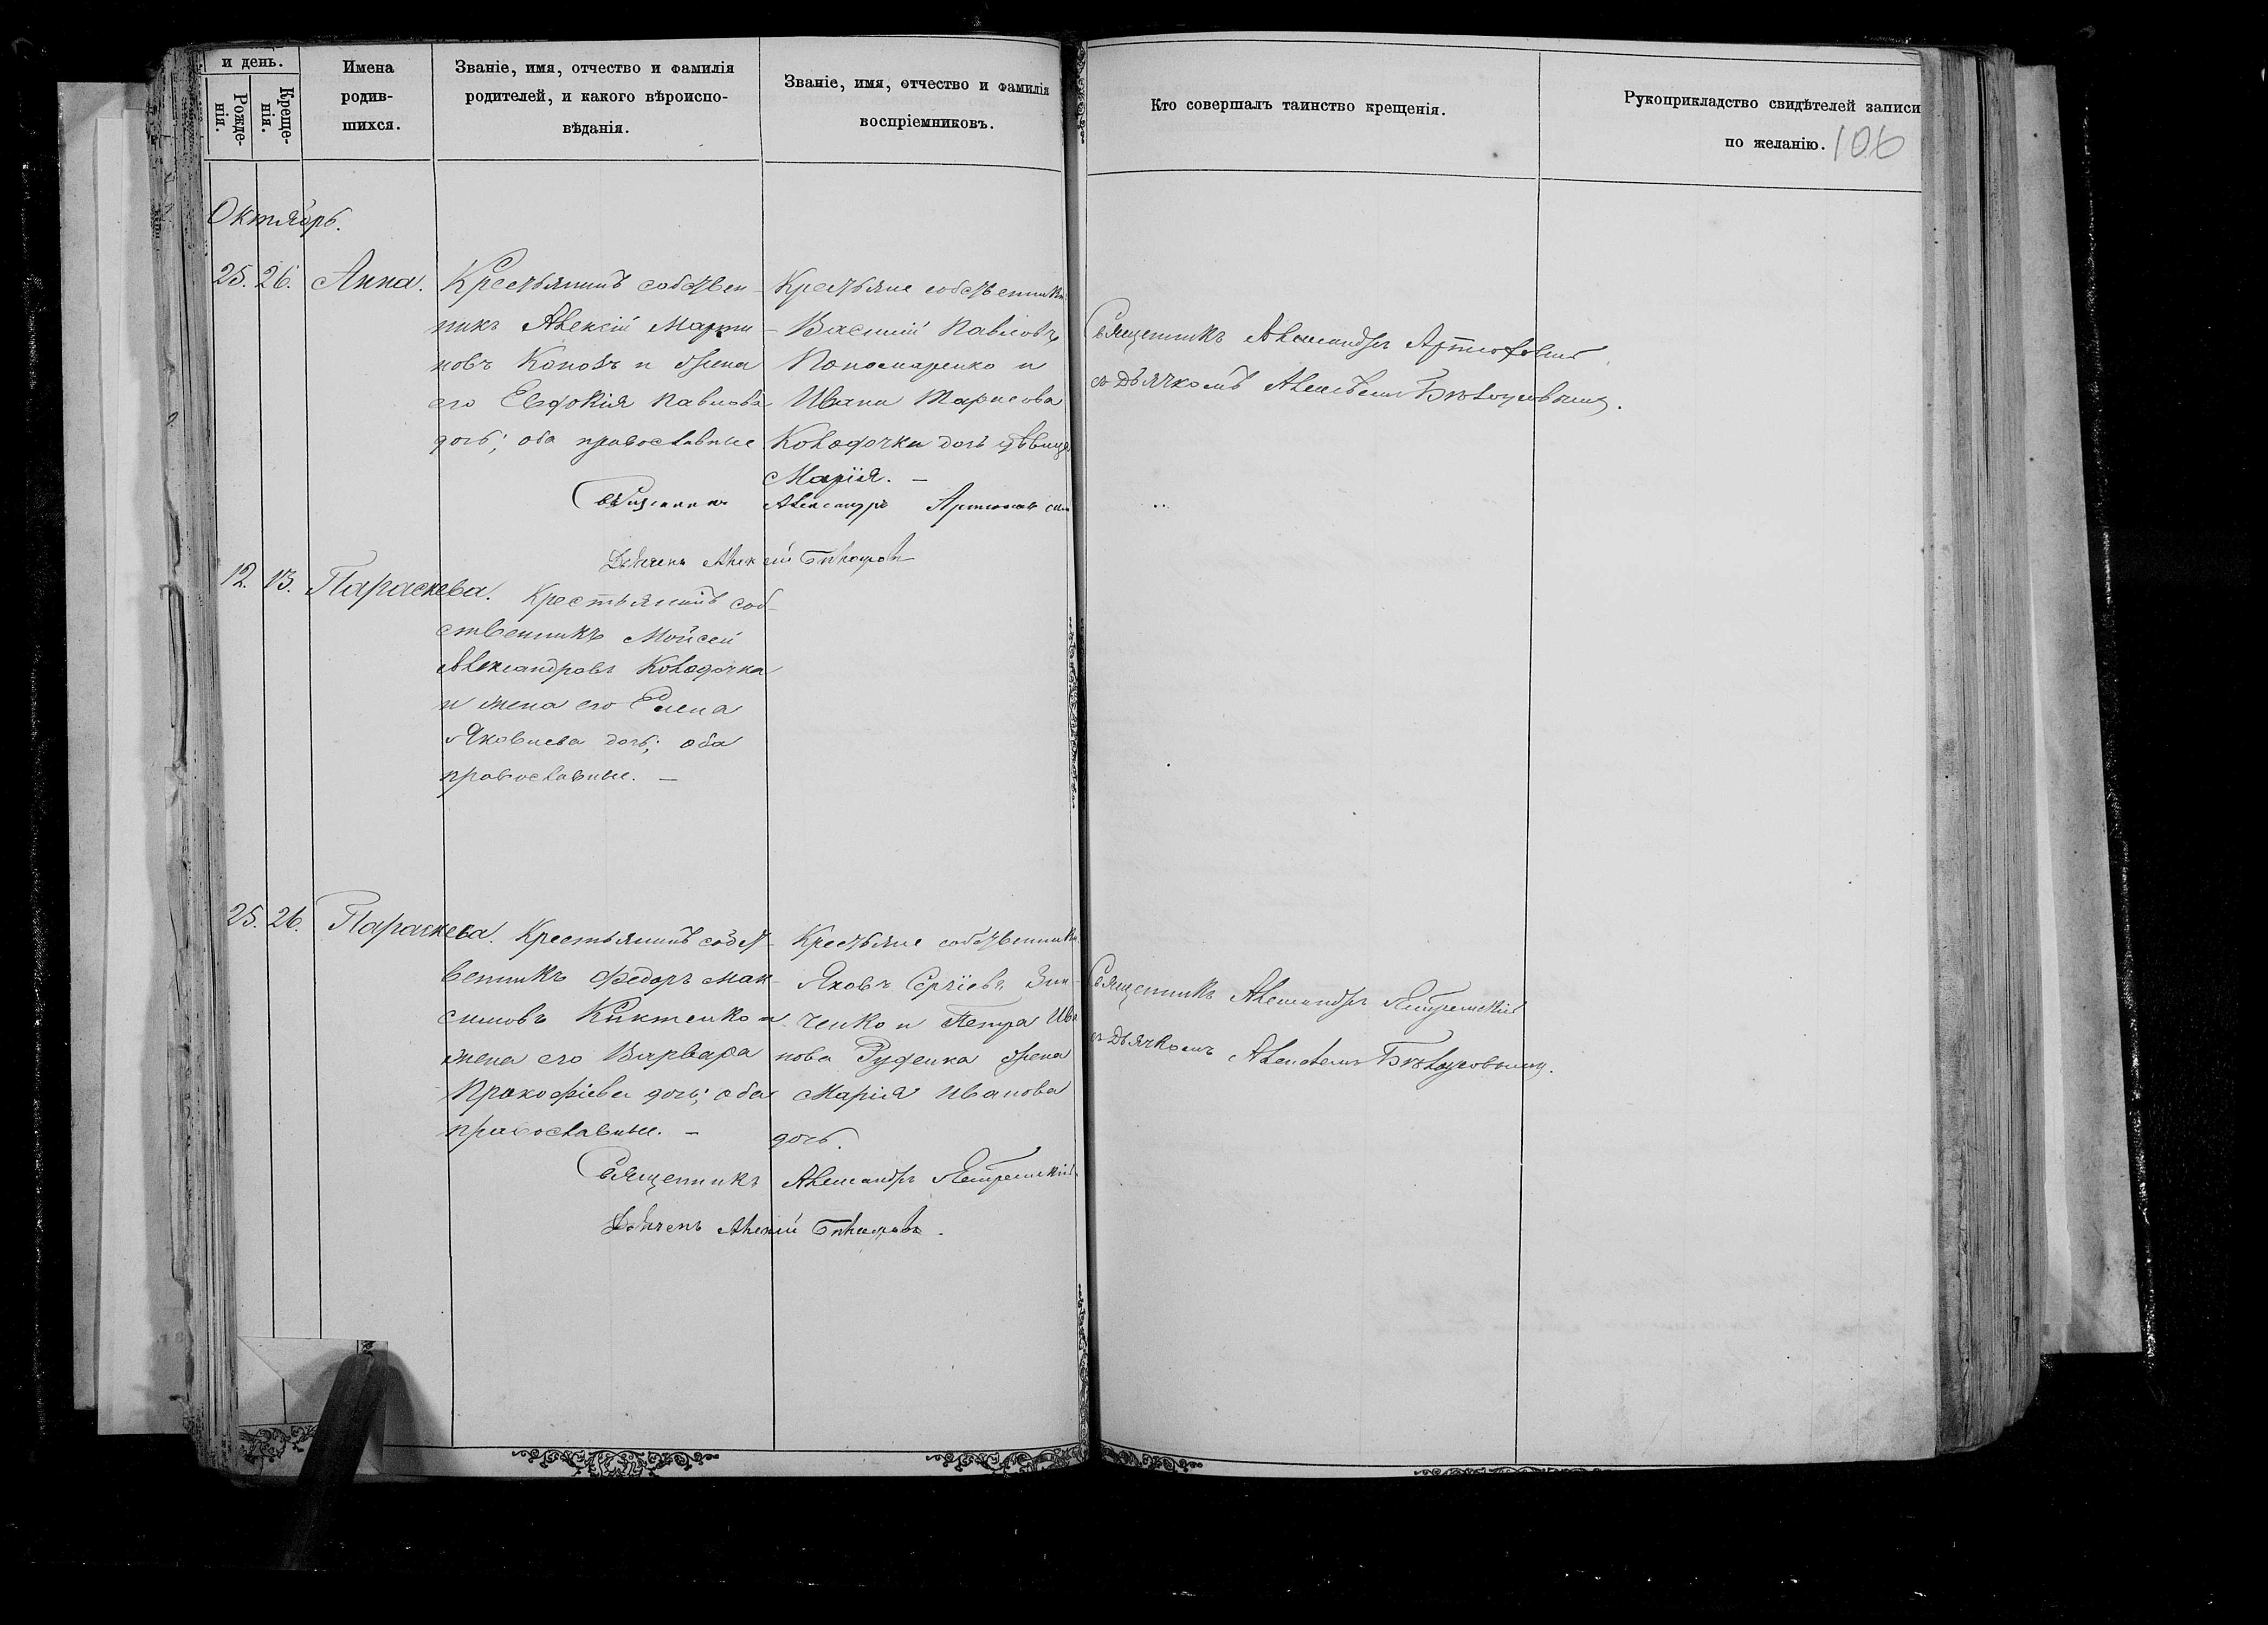 и день.
Рожде-
нія.
Креще-
нія.
Имена
родив-
шихся.
Званіе, имя, отчество и фамилія
родителей, и какого вѣроиспо-
вѣданія.
Званіе, имя, отчество и фамилія
воспріемниковъ.
Кто совершалъ таинство крещенія.
Рукоприкладство свидѣтелей записи
по желанію.
106
Октябрь.
25. 26. Анна.
Крестьянинъ собствен-
никъ Алексій Марти-
новъ Коновъ и жена
его Евдокія Павлова
дочь; оба православные
Крестьяне собственники
Василій Павловъ
Пономаренко и
Ивана Тарасова
Колодочки дочь дѣвица
Марія. —
Священникъ Александръ
Дьячекъ Алексій
Священникъ Александръ
съ Дьячкомъ Алексѣемъ
12. 13. Параскева.
Крестьянинъ соб-
ственникъ Мойсей
Александровъ Колодочка
и жена его Елена
Яковлева дочь; оба
православные. —
25. 26. Параскева.
Крестьянинъ собст-
венникъ Федоръ Мак-
симовъ Киктенко и
жена его Варвара
Прокофіева дочь; оба
православные. —
Крестьяне собственники
Яковъ Сергіевъ Зин-
ченко и Петра Ива
нова Руденка жена
Марія Иванова
дочь.
Священникъ Александръ
Дьячекъ Алексій
Священникъ Александръ
съ Дьячкомъ Алексѣемъ